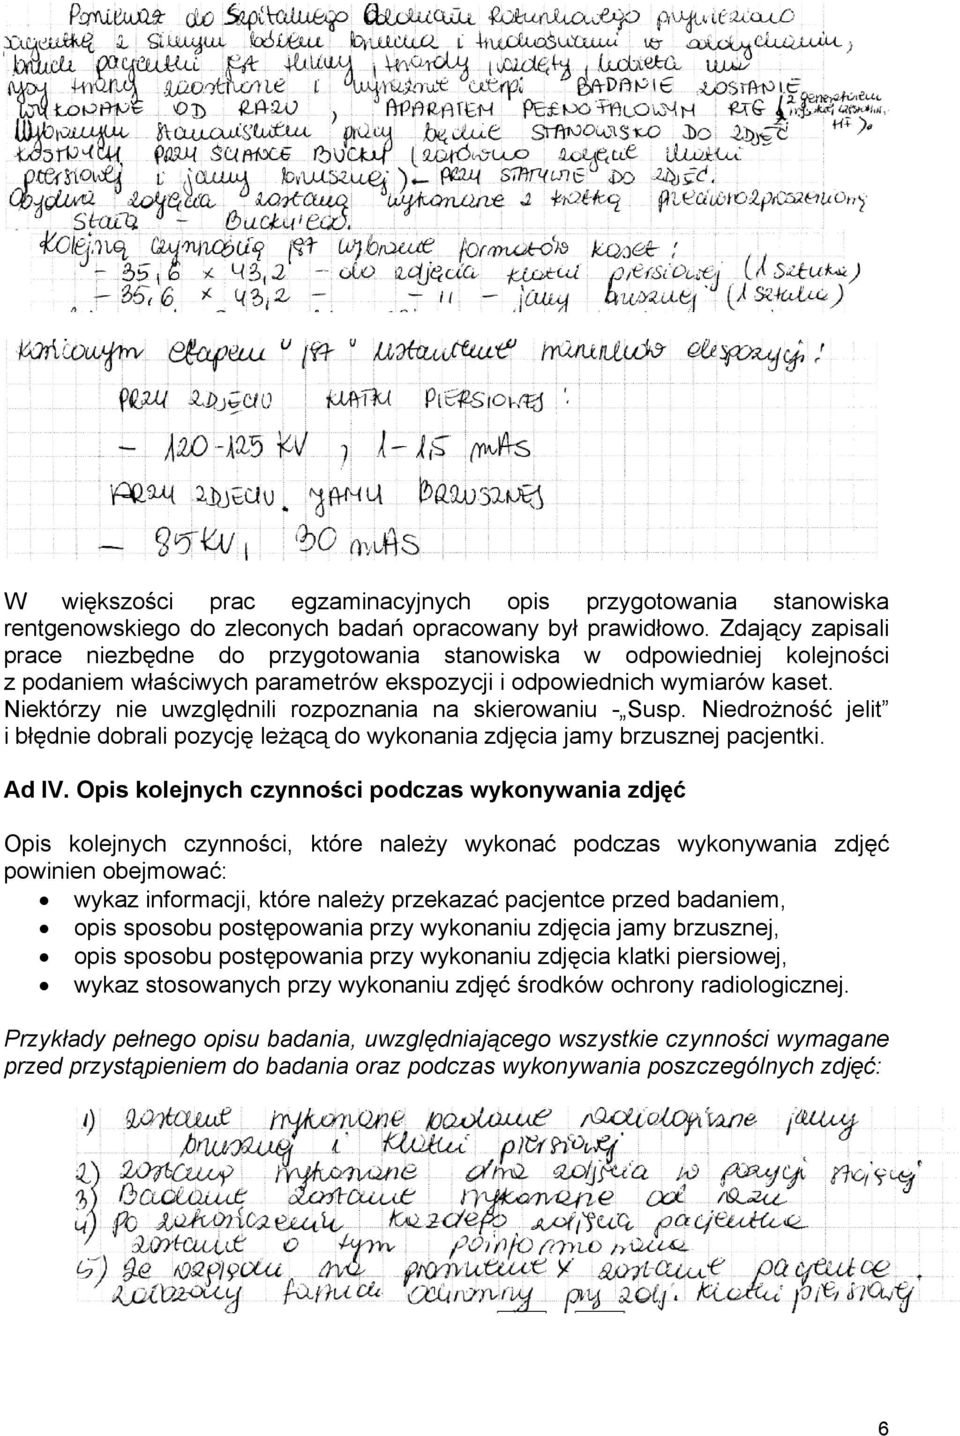 Ponieważ do Szpitalnego Oddziału Ratunkowego przywieziono
pacjentkę z silnym bólem brzucha i trudnościami w oddychaniu,
brzuch pacjentki jest tkliwy, twardy, wzdęty, kobieta ma
twarz i wyraźnie cierpi BADANIE ZOSTANIE
WYKONANE OD RAZU, APARATEM PEŁNOFALOWYM RTG (z generatorem
HF).
Wybranym stanowiskiem pracy będzie STANOWISKO DO ZDJĘĆ
KOSTNYCH PRZY ŚCIANCE BUCKY (zarówno zdjęcie klatki
piersiowej i jamy brzusznej) - PRZY STATYWIE DO ZDJĘĆ.
Obydwa zdjęcia zostaną wykonane z kratką przeciwrozproszeniową
stałą - Bucky'ego.
Kolejną czynnością jest wybranie formatów kaset:
- 35,6 x 43,2 - do zdjęcia klatki piersiowej (1 sztuka)
- 35,6 x 43,2 - - 11 - jamy brzusznej (1 sztuka)
Końcowym etapem "jest" ustawienie warunków ekspozycji!
PRZY ZDJĘCIU KLATKI PIERSIOWEJ:
- 120-125 KV, 1-1,5 mAs
PRZY ZDJĘCIU JAMY BRZUSZNEJ
- 85 KV, 30 mAS
W większości prac egzaminacyjnych opis przygotowania stanowiska
rentgenowskiego do zleconych badań opracowany był prawidłowo. Zdający zapisali
prace niezbędne do przygotowania stanowiska w odpowiedniej kolejności
z podaniem właściwych parametrów ekspozycji i odpowiednich wymiarów kaset.
Niektórzy nie uwzględnili rozpoznania na skierowaniu -„Susp. Niedrożność jelit”
i błędnie dobrali pozycję leżącą do wykonania zdjęcia jamy brzusznej pacjentki.
Ad IV. Opis kolejnych czynności podczas wykonywania zdjęć
Opis kolejnych czynności, które należy wykonać podczas wykonywania zdjęć
powinien obejmować:
• wykaz informacji, które należy przekazać pacjentce przed badaniem,
• opis sposobu postępowania przy wykonaniu zdjęcia jamy brzusznej,
• opis sposobu postępowania przy wykonaniu zdjęcia klatki piersiowej,
• wykaz stosowanych przy wykonaniu zdjęć środków ochrony radiologicznej.
Przykłady pełnego opisu badania, uwzględniającego wszystkie czynności wymagane
przed przystąpieniem do badania oraz podczas wykonywania poszczególnych zdjęć:
1) zostanie wykonane badanie radiologiczne jamy
brzusznej i klatki piersiowej
2) zostaną wykonane dwa zdjęcia w pozycji stojącej
3) Badanie zostanie wykonane od razu
4) Po zakończeniu każdego zdjęcia pacjentka
zostanie o tym poinformowana
5) Ze względu na promienie X zostanie pacjentce
założony fartuch ochronny przy zdj. klatki piersiowej
6